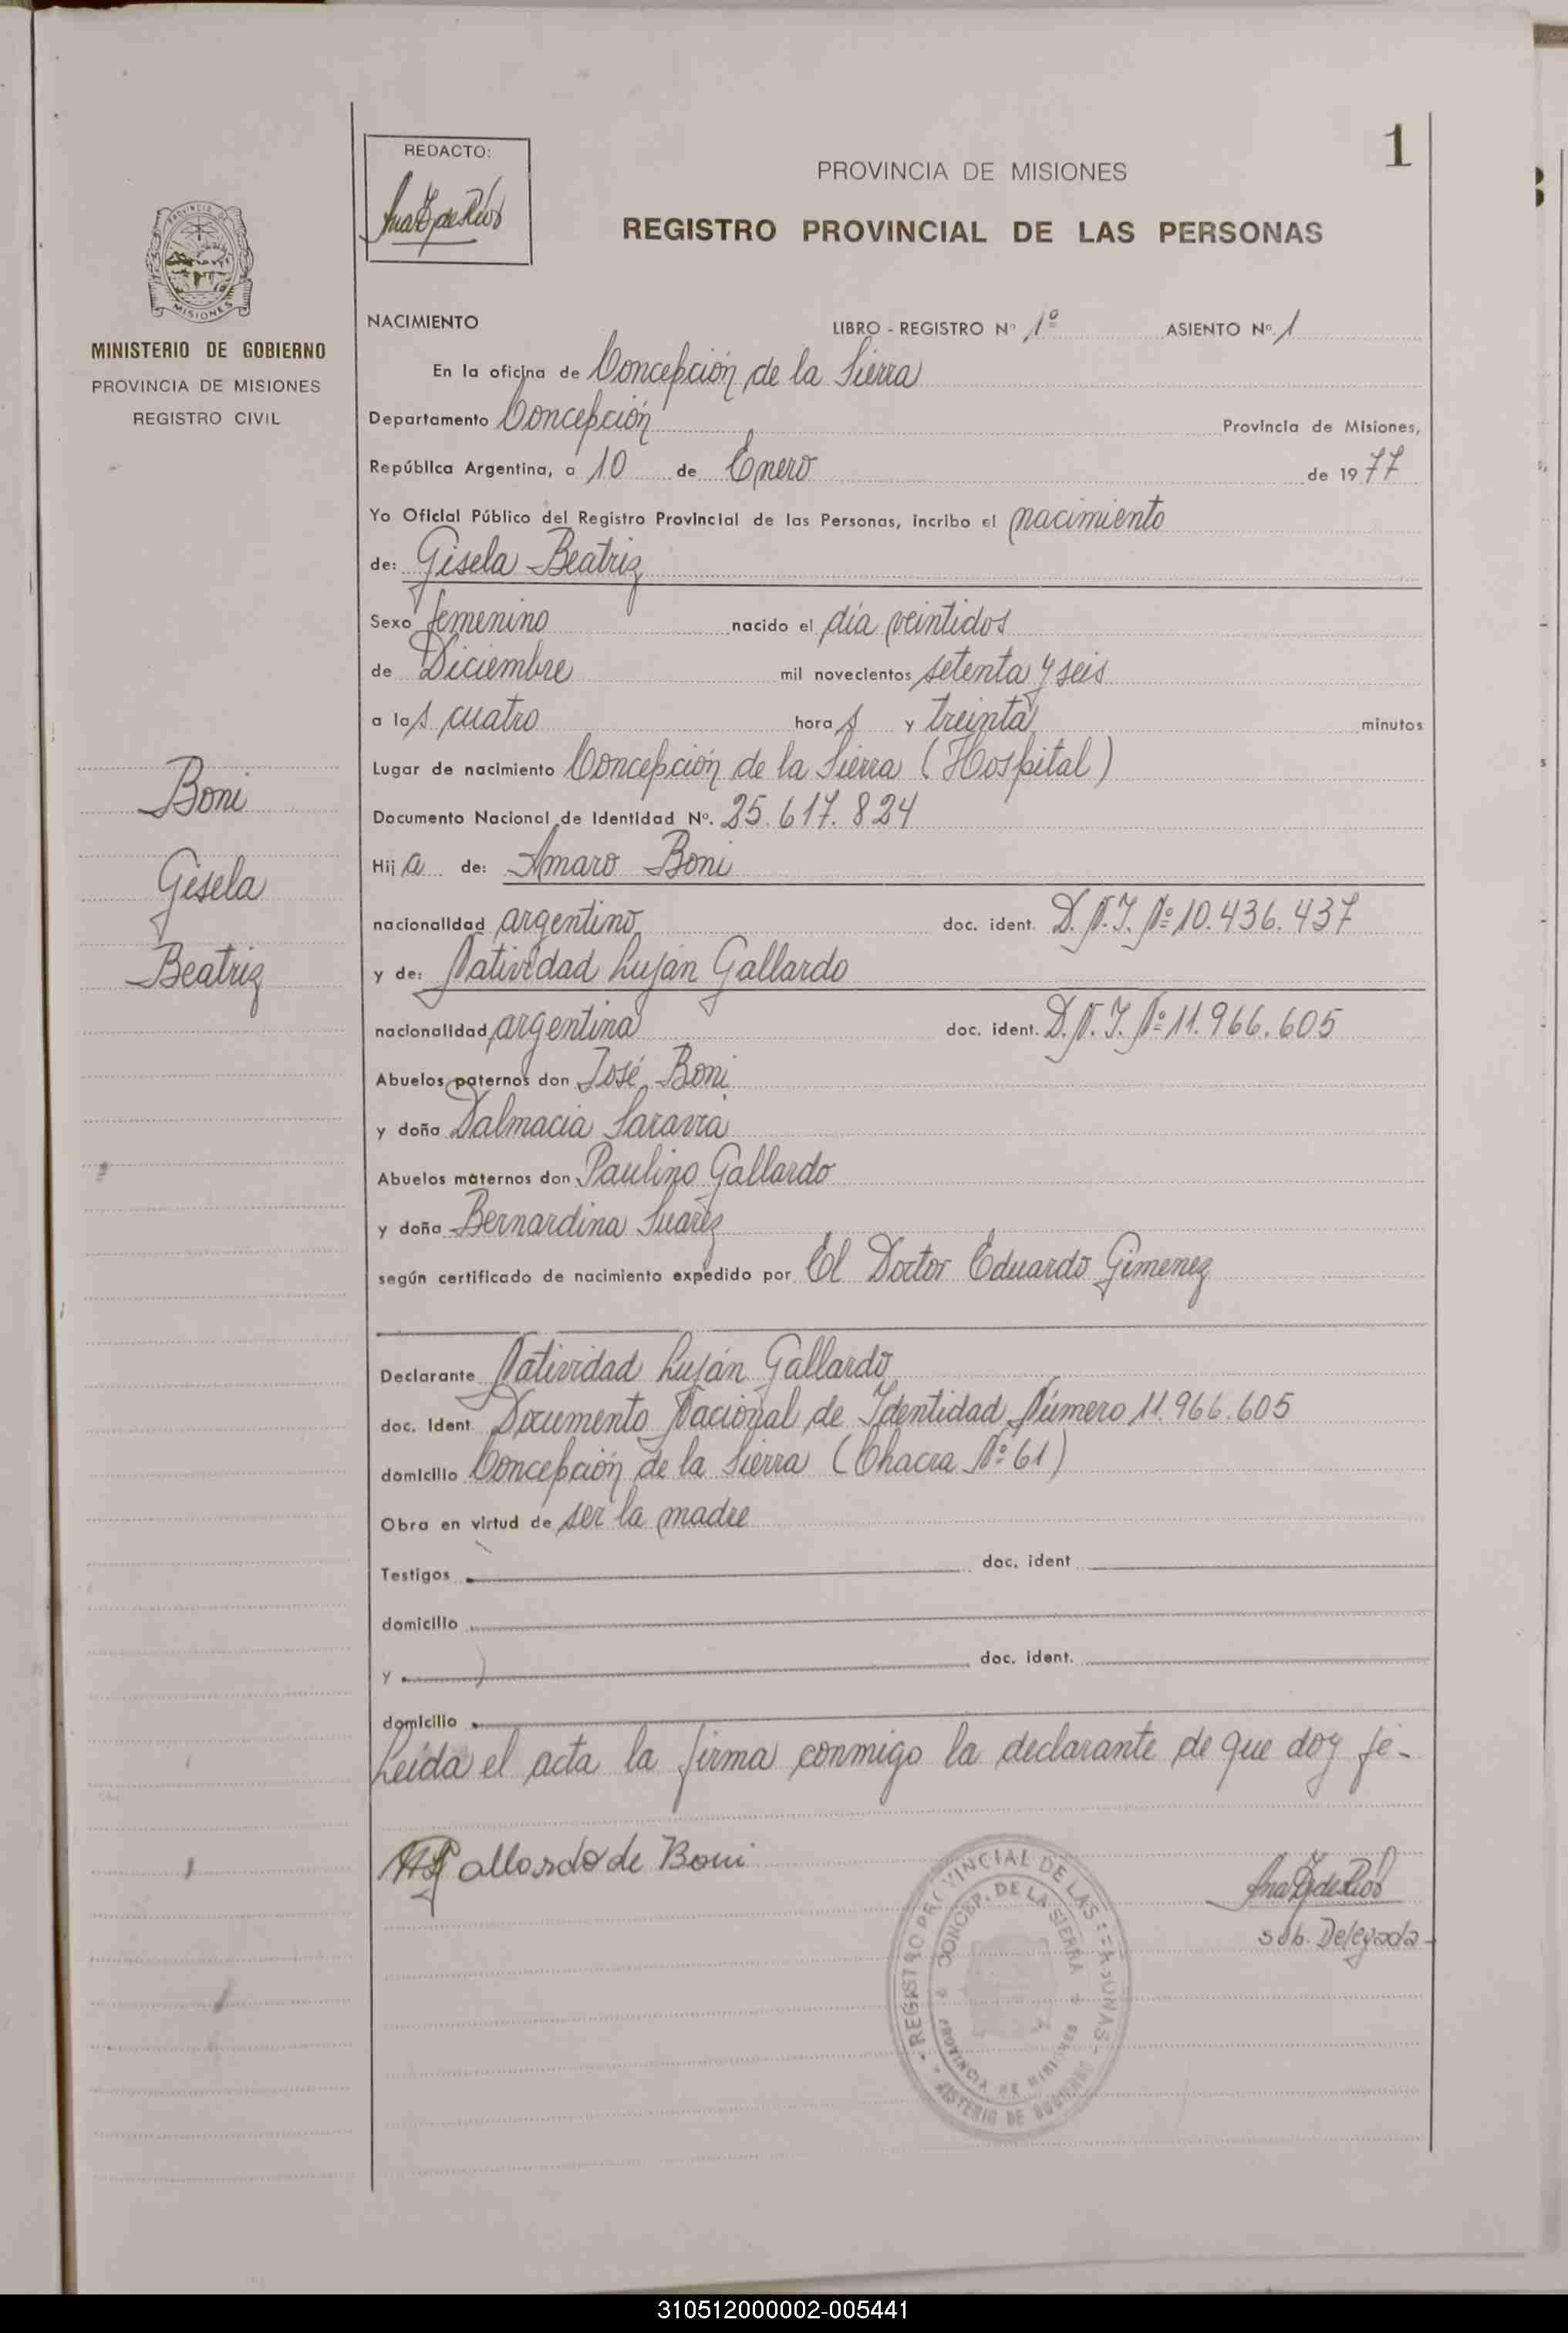 1
REDACTO:
PROVINCIA DE MISIONES
REGISTRO PROVINCIAL DE LAS PERSONAS
MISIONES
MINISTERIO DE GOBIERNO
PROVINCIA DE MISIONES
REGISTRO CIVIL
NACIMIENTO LIBRO - REGISTRO Nº 1º ASIENTO Nº 1
En la oficina de Concepción de la Sierra
Departamento Concepción Provincia de Misiones,
República Argentina, a 10 de Enero de 1977
Yo Oficial Público del Registro Provincial de las Personas, incribo el nacimiento
de: Gisela Beatriz
Sexo femenino nacido el día veintidos
de Diciembre mil novecientos setenta y seis
a las cuatro horas y treinta minutos
Lugar de nacimiento Concepción de la Sierra (Hospital)
Documento Nacional de Identidad Nº. 25.617.824
Hija de: Amaro Boni
nacionalidad argentino doc. ident. D.N.I. Nº 10.436.437
y de: Natividad Luján Gallardo
nacionalidad argentina doc. ident. D.N.I. Nº 11.966.605
Abuelos paternos don José Boni
y doña Dalmacia Saravia
Abuelos maternos don Paulino Gallardo
y doña Bernardina Suarez
según certificado de nacimiento expedido por El Doctor Eduardo Gimenez
Declarante Natividad Luján Gallardo
doc. Ident. Documento Nacional de Identidad Número 11.966.605
domicilio Concepción de la Sierra (Chacra Nº 61)
Obra en virtud de ser la madre
Testigos doc. ident
domicilio
y doc. ident.
domicilio
Leída el acta la firma conmigo la declarante de que doy fe-
Boni
Gisela
Beatriz
Gallardo de Boni
sub. Delegada
REGISTRO PROVINCIAL DE LAS PERSONAS
CONCEP. DE LA SIERRA
PROVINCIA DE MISIONES
MINISTERIO DE GOBIERNO
310512000002-005441